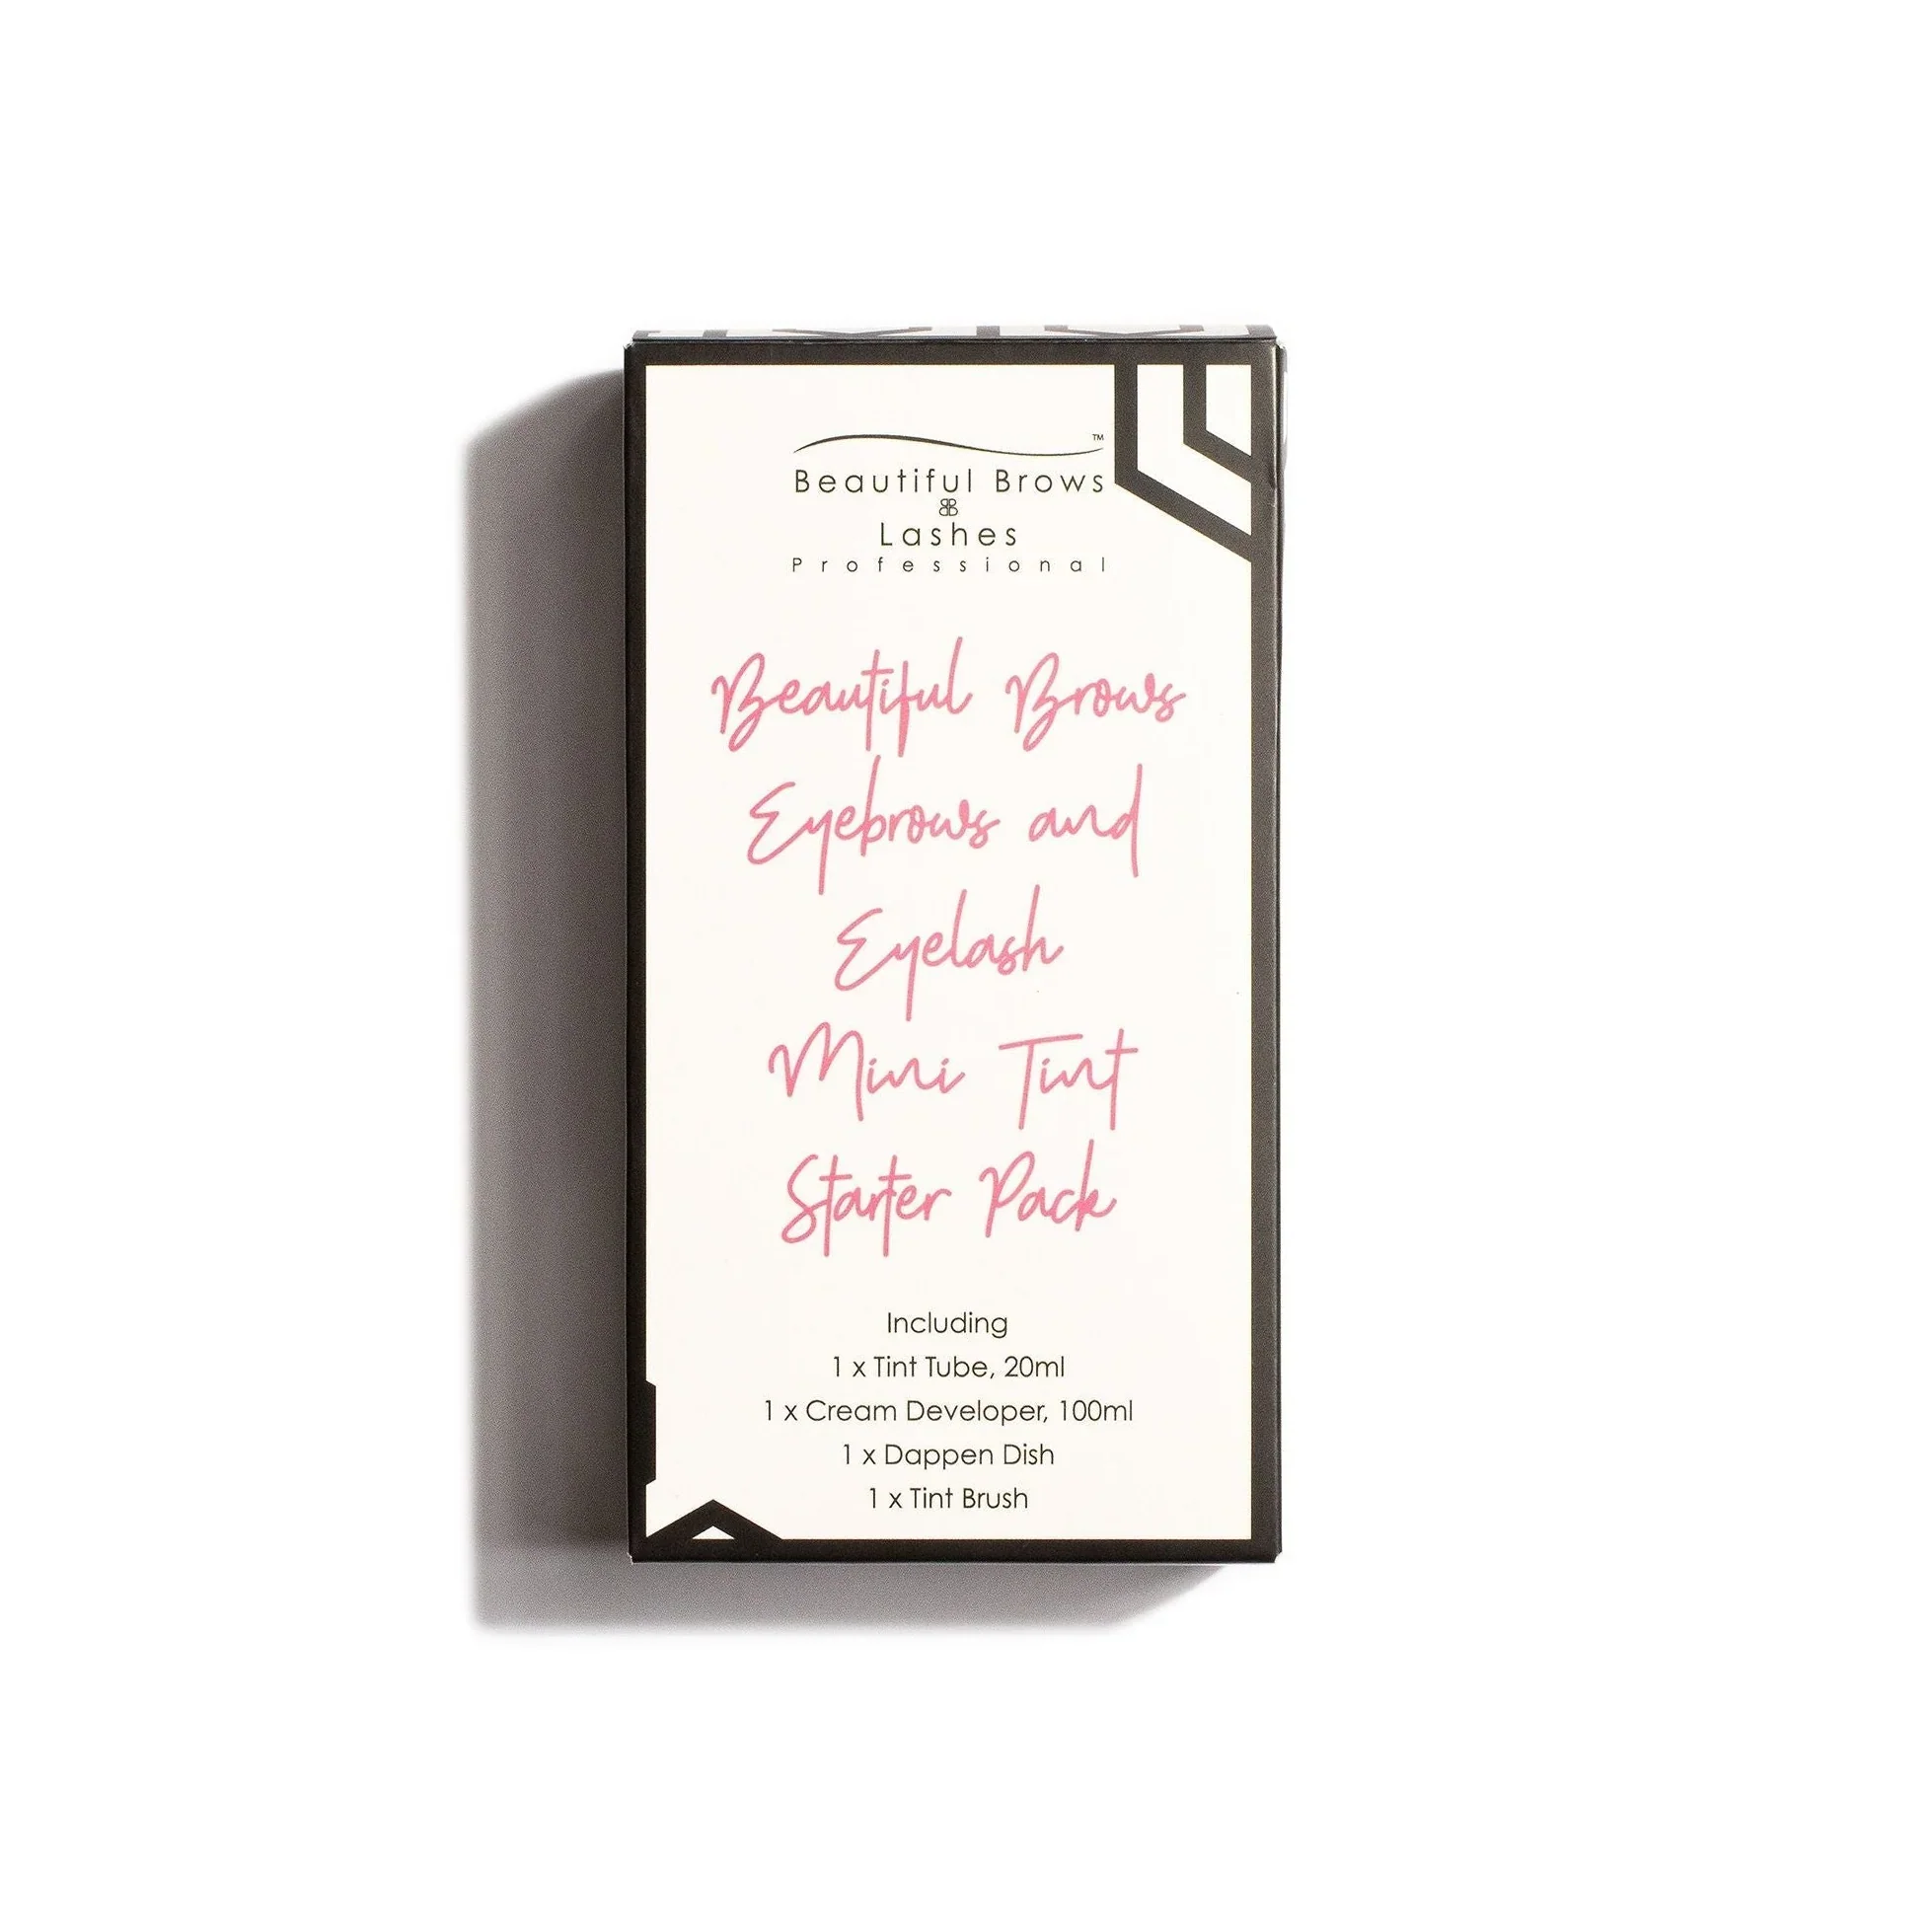 ™
Beautiful Brows
BB
Lashes
Professional
Beautiful Brows
Eyebrows and
Eyelash
Mini Tint
Starter Pack
Including
1 x Tint Tube, 20ml
1 x Cream Developer, 100ml
1 x Dappen Dish
1 x Tint Brush